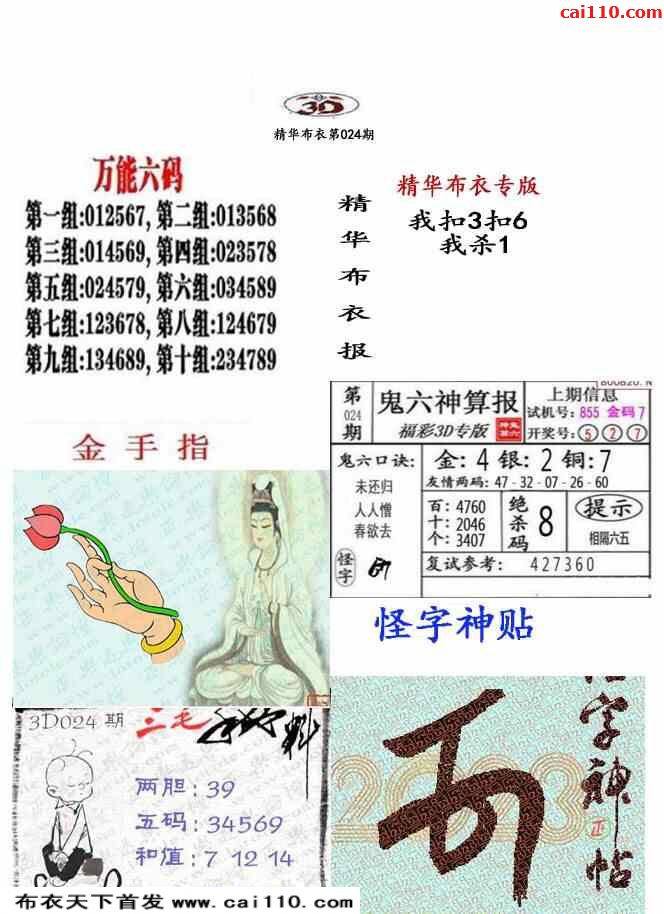 cai110.com
3D
精华布衣第024期
万能六码
第一组:012567, 第二组:013568
第三组:014569, 第四组:023578
第五组:024579, 第六组:034589
第七组:123678, 第八组:124679
第九组:134689, 第十组:234789
精华布衣报
精华布衣专版
我扣3扣6
我杀1
金手指
第024期
鬼六神算报
福彩3D专版
上期信息
试机号: 855 金码 7
开奖号: 5 2 7
鬼六口诀:
未还归
人人憎
春欲去
怪字
金: 4 银: 2 铜: 7
友情两码: 47-32-07-26-60
百: 4760
十: 2046
个: 3407
绝杀码 8
提示
相隔六五
复试参考: 427360
怪字神贴
怪字神帖
正
2023
3D024 期
三毛
料
两胆: 39
五码: 34569
和值: 7 12 14
布衣天下首发 www.cai110.com